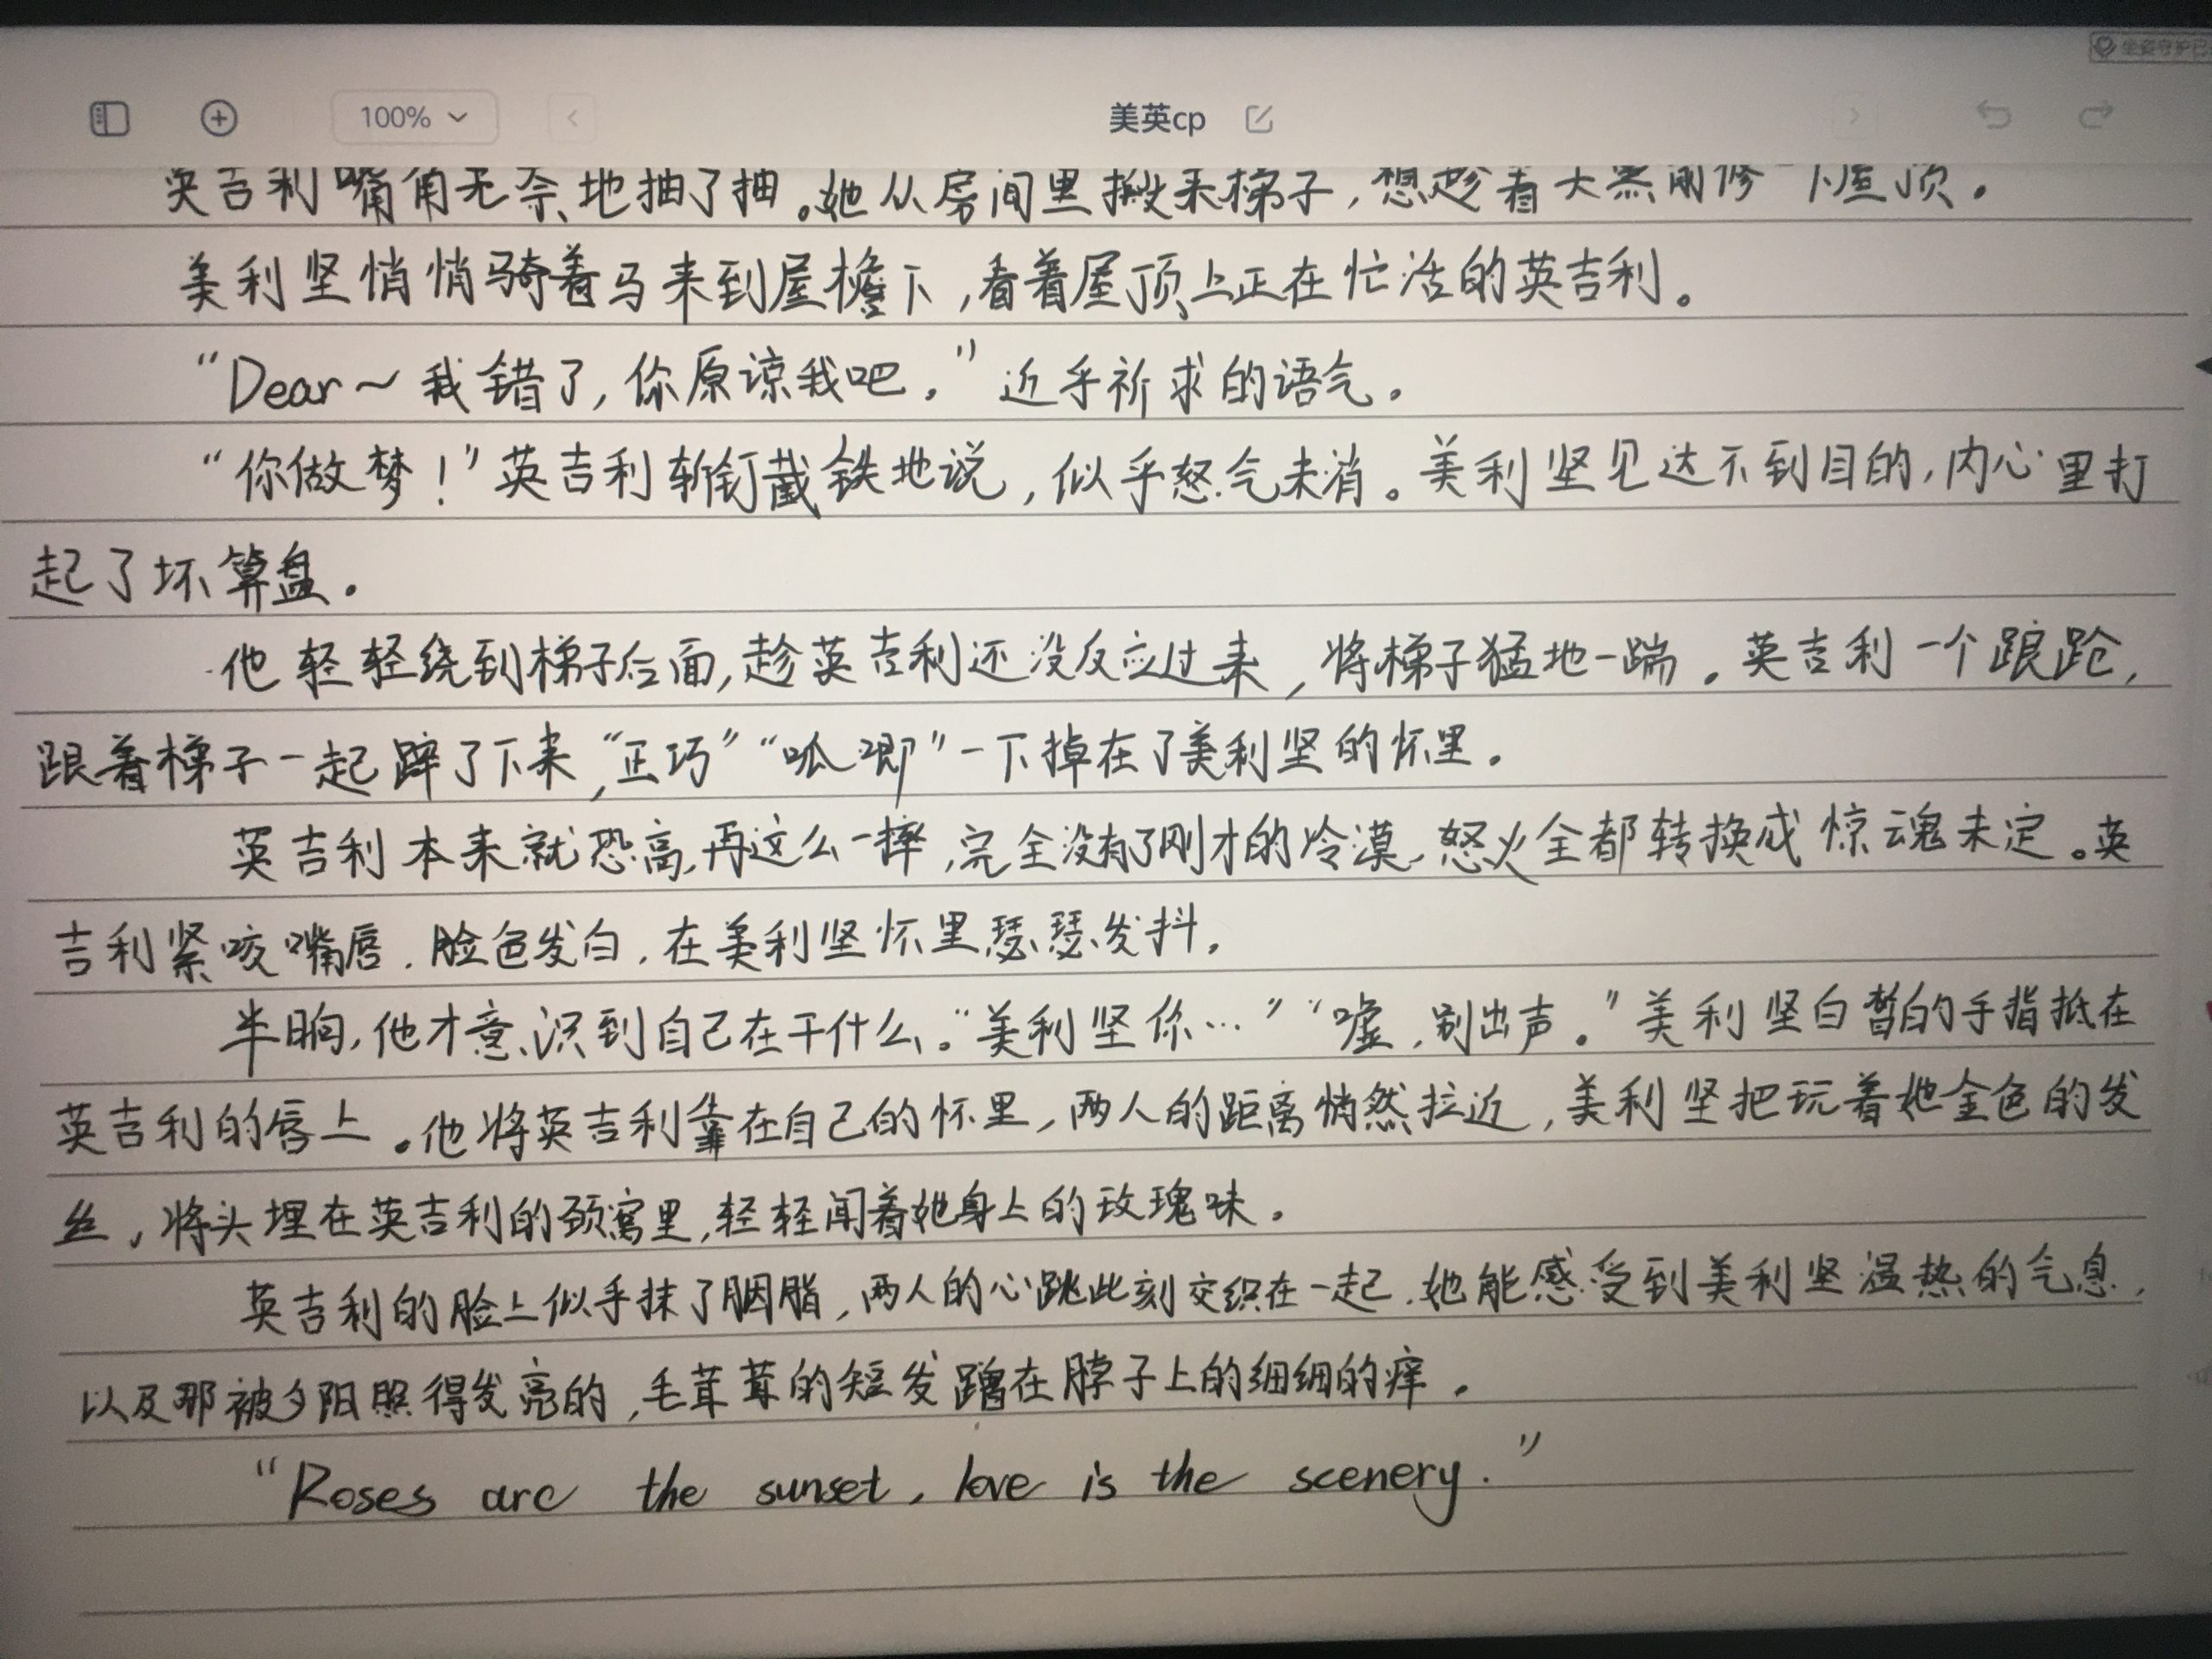 坐姿守护已
100%
美英cp
英吉利嘴角无奈地抽了抽。她从房间里搬来梯子，想趁着天黑前修一下屋顶。
美利坚悄悄骑着马来到屋檐下，看着屋顶上正在忙活的英吉利。
“Dear～我错了，你原谅我吧。”近乎祈求的语气。
“你做梦！”英吉利斩钉截铁地说，似乎怒气未消。美利坚见达不到目的，内心里打
起了坏算盘。
他轻轻绕到梯子后面，趁英吉利还没反应过来，将梯子猛地一踹。英吉利一个踉跄，
跟着梯子一起摔了下来，“正巧”“呱唧”一下掉在了美利坚的怀里。
英吉利本来就恐高，再这么一摔，完全没有了刚才的冷漠，怒火全都转换成惊魂未定。英
吉利紧咬嘴唇，脸色发白，在美利坚怀里瑟瑟发抖。
半晌，他才意识到自己在干什么。“美利坚你…”“嘘，别出声。”美利坚白皙的手指抵在
英吉利的唇上。他将英吉利靠在自己的怀里，两人的距离悄然拉近，美利坚把玩着她金色的发
丝，将头埋在英吉利的颈窝里，轻轻闻着她身上的玫瑰味。
英吉利的脸上似乎抹了胭脂，两人的心跳此刻交织在一起，她能感受到美利坚温热的气息，
以及那被夕阳照得发亮的，毛茸茸的短发蹭在脖子上的细细的痒。
“Roses are the sunset, love is the scenery.”